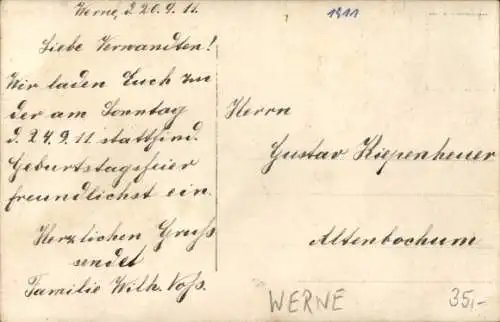 Werne, d. 20.9.11.
1911
Liebe Verwandten!
Wir laden Euch zu
der am Sonntag
d. 24.9.11 stattfind.
Geburtstagsfeier
freundlichst ein.
Herzlichen Gruss
sendet
Familie Wilh. Voss.
Herrn
Gustav Kiepenheuer
Altenbochum
WERNE
35,-